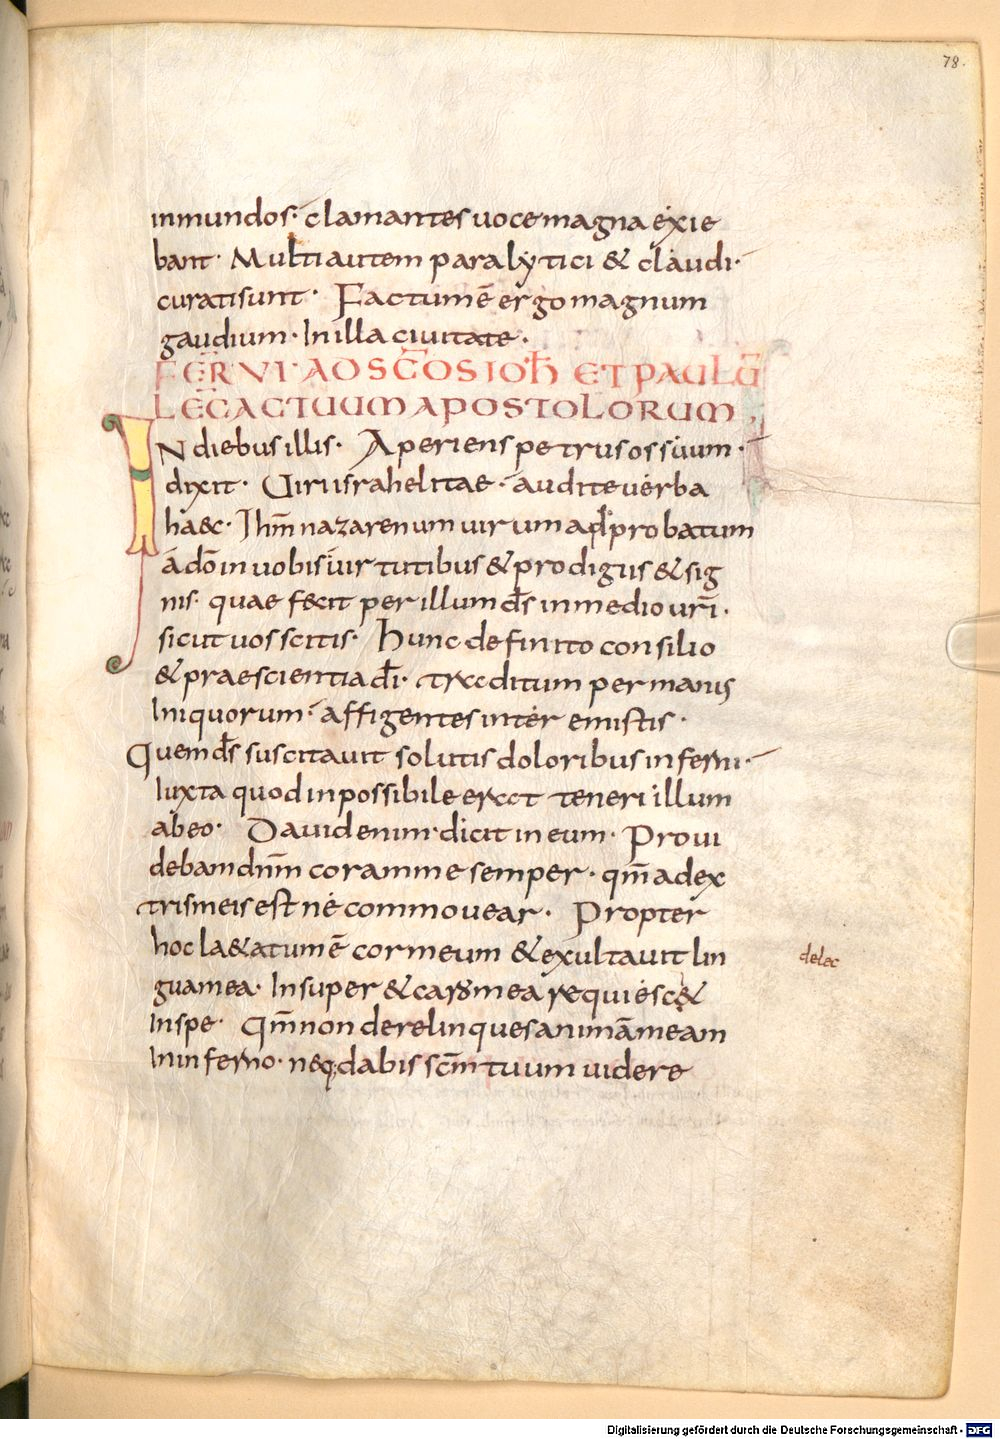 78.
inmundos· clamantes uoce magna exie
bant· Multi autem paralytici & claudi·
curati sunt· Factum ē ergo magnum
gaudium· In illa ciuitate·
FER VI· AD SC̄OS IOH̄ ET PAULŪ
LEC̄ ACTUUM APOSTOLORUM
IN diebus illis· Aperiens petrus os suum·
dixit· Uiri israhelitae· audite uerba
haec· Ihm̄ nazarenum uirum adprobatum
a dō in uobis uirtutibus & prodigiis & sig
nis· quae fecit per illum ds̄ in medio urī·
sicut uos scitis· Hunc definito consilio
& praescientia dī· traditum per manus
Iniquorum· affigentes interemistis·
Quem ds̄ suscitauit solutis doloribus inferni·
Iuxta quod inpossibile erat teneri illum
ab eo· Dauid enim dicit in eum· Proui
debam dnm̄ coram me semper· qm̄ a dex
tris meis est ne commouear· Propter
hoc laetatum ē cor meum & exultauit lin
gua mea· Insuper & caro mea requiescet
In spe· Qm̄ non derelinques animā meam
In inferno· neq; dabis scm̄ tuum uidere
delec
Digitalisierung gefördert durch die Deutsche Forschungsgemeinschaft - DFG